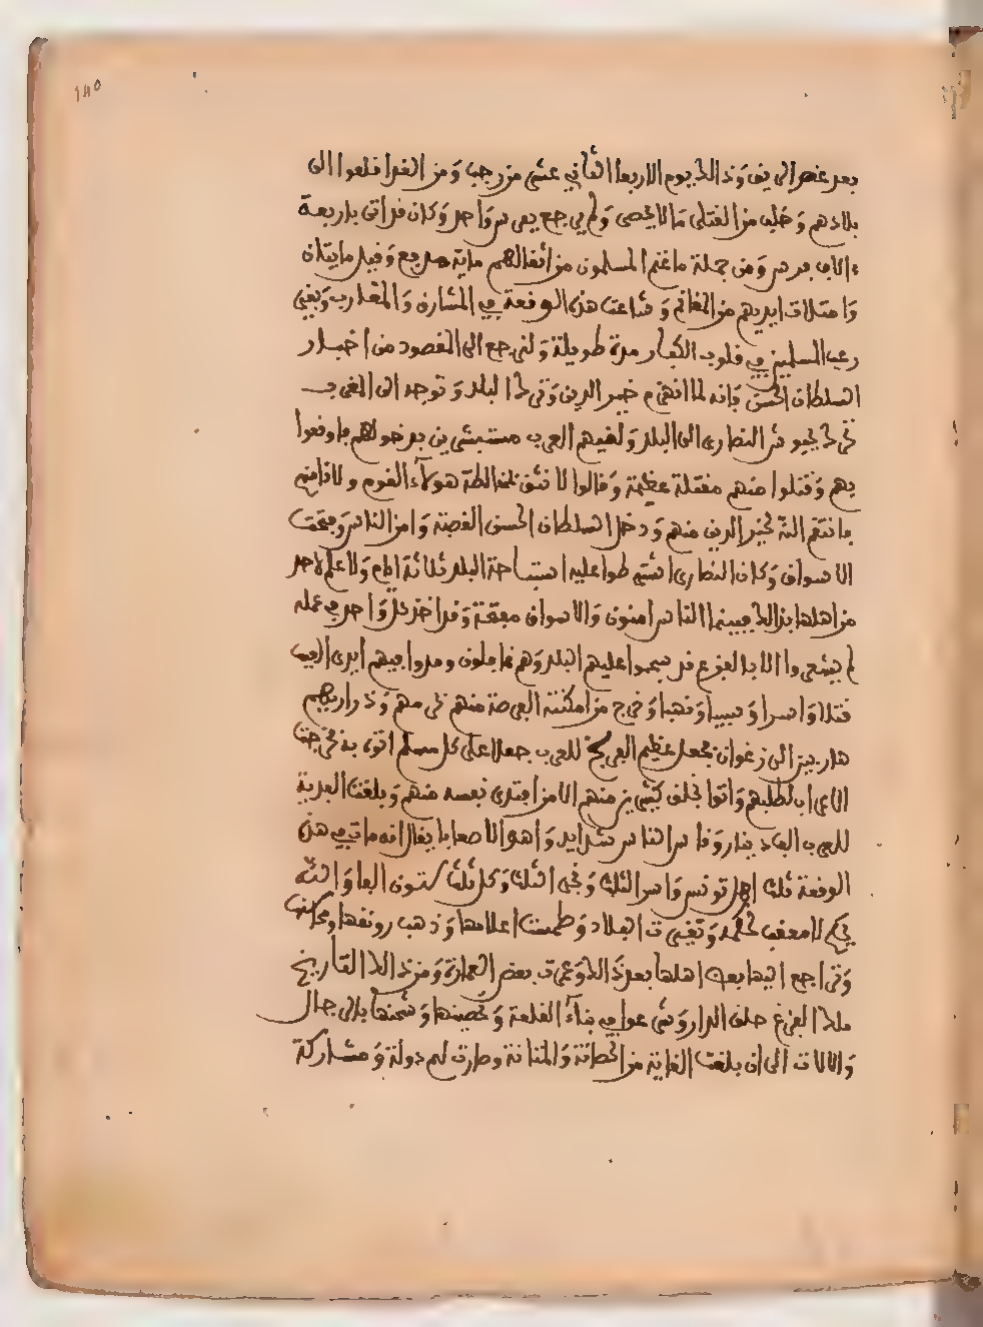 ١٨٥
بعد عصر اليوم وذالك يوم الاربعا الثاني عشر من رجب ومن الغد اقلعوا الى
بلادهم وخلف من القتلى ما لا يحصى ولم يرجع بفرس واحد وكان قد اتى باربعة
ءالاف فرس ومن جملة ما غنم المسلمون من اثقالهم ماية مدفع وقيل مايتان
وامتلات ايديهم من الغنائم وشاعت هذه الوقعة في المشارق والمغارب وبقي
رعب المسلمين في قلوب الكفار مدة طويلة ولنرجع الى المقصود من اخبار
السلطان الحسن فانه لما انهزم خير الدين وترك البلد وتوجه الى الغرب
النصارى الى البلد ولقيهم العرب مستبشرين بدخولهم فاوقعوا
بهم وقتلوا منهم مقتلة عظيمة وقالوا لا نثق بمخالطة هولاء القوم ولا نامنهم
فانتقم الله لخير الدين منهم ودخل السلطان الحسن القصبة وامن الناس وفتحت
الاسواق وكان النصارى اشترطوا عليه استباحة البلد ثلاثة ايام ولا علم لاحد
من اهلها بذالك فبينما الناس امنون والاسواق مفتحة وقد اخذ كل واحد في عمله
لم يشعروا الا بالفزع قد هجموا عليهم البلد وهم غافلون ومدوا فيهم ايدي العيث
قتلا واسرا وسبيا ونهبا وخرج من امكنته الفرصة منهم بحرمهم وذراريهم
هاربين الى زغوان فجعل عظيم الفرنج للعرب جعلا على كل مسلم اتوه به فخرجت
الاعراب لطلبهم واتوا بخلق كثير منهم الا من افتدى نفسه منهم وبلغت الفدية
للعرب الف دينار وقاسى الناس شدايد واهوالا صعابا يقال انه مات في هذه
الوقعة ثلث اهل تونس واسر الثلث ونجى الثلث وكل ثلث ستون الفا والله
يحكم لا معقب لحكمه وتغيرت البلاد وطمست اعلامها وذهب رونقها ومحاسنها
وتراجع اليها بعض اهلها بعد ذالك وعمرت بعض العمارة ومن ذالك التاريخ
ملك الفزع حلق الواد وشرعوا في بناء القلعة وتحصينها وشحنها بالرجال
والالات الى ان بلغت الغاية من الحصانة والمتانة وصارت لهم دولة ومشاركة